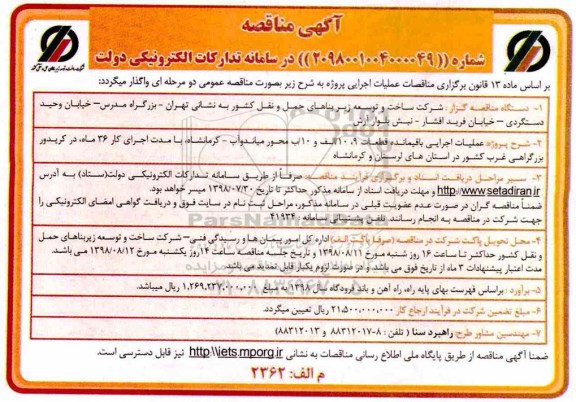 آگهی مناقصه
شماره (( ۲۰۹۸۰۰۱۰۰۴۰۰۰۰۴۹ )) در سامانه تدارکات الکترونیکی دولت
بر اساس ماده ۱۳ قانون برگزاری مناقصات عملیات اجرایی پروژه به شرح زیر بصورت مناقصه عمومی دو مرحله ای واگذار میگردد:
۱- دستگاه مناقصه گزار : شرکت ساخت و توسعه زیربناهای حمل و نقل کشور به نشانی تهران - بزرگراه مدرس– خیابان وحید
دستگردی – خیابان فرید افشار - نبش بلوار آرش
۲- شرح پروژه: عملیات اجرایی باقیمانده قطعات ۹، ۱۰الف و ۱۰ب محور میاندوآب - کرمانشاه، با مدت اجرای کار ۳۶ ماه، در کریدور
بزرگراهی غرب کشور در استان های لرستان و کرمانشاه
۳- سیر مراحل دریافت اسناد و برگزاری فرآیند مناقصه: صرفاً از طریق سامانه تدارکات الکترونیکی دولت(ستاد) به آدرس
http://www.setadiran.ir و مهلت دریافت اسناد از سامانه مذکور حداکثر تا تاریخ ۱۳۹۸/۰۷/۳۰ میسر خواهد بود.
ضمناً مناقصه گران در صورت عدم عضویت قبلی در سامانه مذکور، مراحل ثبت نام در سایت فوق و دریافت گواهی امضای الکترونیکی را
جهت شرکت در مناقصه به انجام رسانند. تلفن پشتیبانی سامانه: ۴۱۹۳۴
۴- محل تحویل پاکت شرکت در مناقصه (صرفا پاکت الف): اداره کل امور پیمان ها و رسیدگی فنی– شرکت ساخت و توسعه زیربناهای حمل
و نقل کشور حداکثر تا ساعت ۱۶ روز شنبه مورخ ۱۳۹۸/۰۸/۱۱ و تاریخ جلسه مناقصه ساعت ۱۴ روز یکشنبه مورخ ۱۳۹۸/۰۸/۱۲ می باشد.
مدت اعتبار پیشنهادات ۳ ماه از تاریخ فوق می باشد و در صورت لزوم یکبار قابل تمدید می باشد.
۵- برآورد : براساس فهرست بهای پایه راه، راه آهن و باند فرودگاه سال ۱۳۹۸ به مبلغ ۱,۲۶۹,۲۳۷,۰۰۰,۰۰۰ ریال میباشد.
۶- مبلغ تضمین شرکت در فرآیند ارجاع کار ۲۱,۵۰۰,۰۰۰,۰۰۰ ریال تعیین میگردد.
۷- مهندسین مشاور طرح: راهبرد سنا ( تلفن : ۸-۸۸۳۱۲۰۱۷ و ۸۸۳۱۲۰۱۳ )
ضمنا آگهی مناقصه از طریق پایگاه ملی اطلاع رسانی مناقصات به نشانی http:\\iets.mporg.ir نیز قابل دسترسی است.
م الف: ۲۳۶۲
ParsNamadData